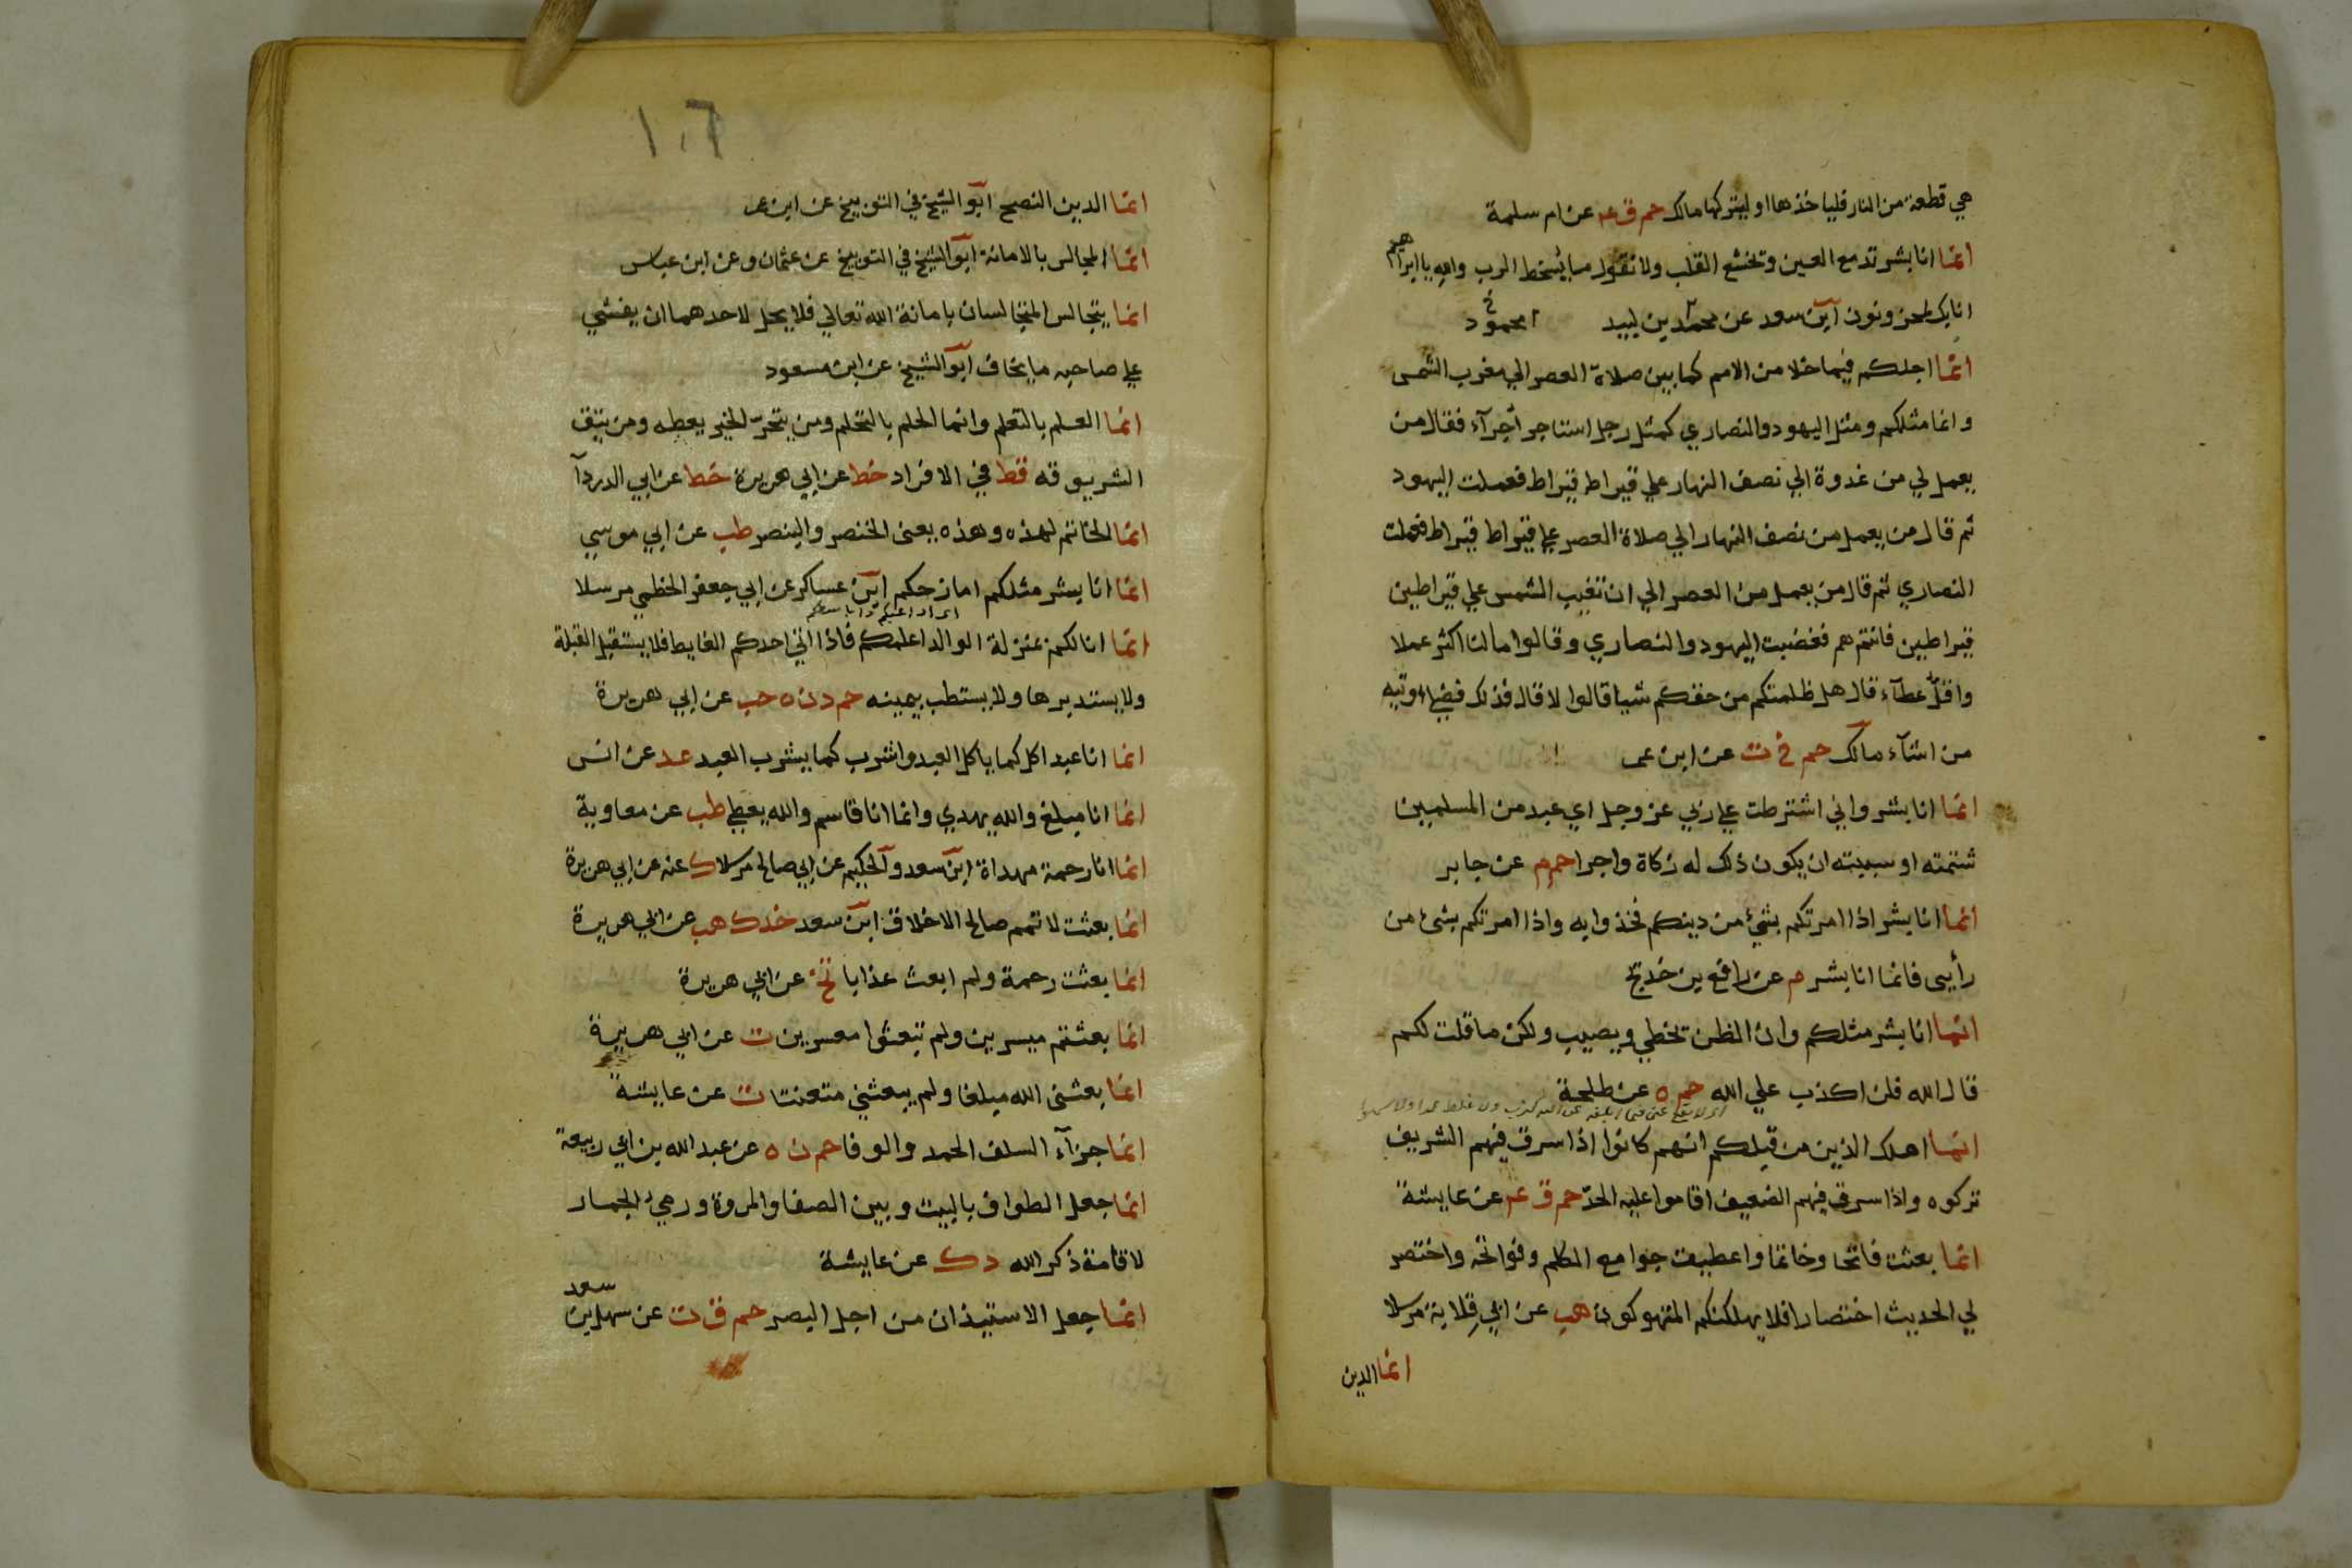 هي قطعة من النار فلياخذها او ليتركها مالك حم ق عه عن ام سلمة
انما انا بشر تدمع العين وتخشع القلب ولا نقول ما يسخط الرب والله يا ابراهيم
انا بك لمحزونون ابن سعد عن محمد بن لبيد محمود
انما اجلكم فيما خلا من الامم كما بين صلاة العصر الي مغرب الشمس
وانما مثلكم ومثل اليهود والنصاري كمثل رجل استاجر اجرآء فقال من
يعمل لي من غدوة الي نصف النهار علي قيراط قيراط فعملت اليهود
ثم قال من يعمل من نصف النهار الي صلاة العصر علي قيراط قيراط فعملت
النصاري ثم قال من يعمل من العصر الي ان تغيب الشمس علي قيراطين
قيراطين فانتم هم فغضبت اليهود والنصاري وقالوا ما لنا اكثر عملا
واقل عطآء قال هل ظلمتكم من حقكم شيا قالوا لا قال فذلك فضلي اوتيه
من اشآء مالك حم خ ت عن ابن عمر
انما انا بشر واني اشترطت علي ربي عز وجل اي عبد من المسلمين
شتمته او سببته ان يكون ذلك له زكاة واجرا حم م عن جابر
انما انا بشر اذا امرتكم بشئ من دينكم فخذوا به واذا امرتكم بشئ من
رأيي فانما انا بشر م عن رافع بن خديج
انما انا بشر مثلكم وان الظن تخطي ويصيب ولكن ما قلت لكم
قال الله فلن اكذب علي الله حم ه عن طلحة
انما اهلك الذين من قبلكم انهم كانوا اذا سرق فيهم الشريف
تركوه واذا سرق فيهم الضعيف اقاموا عليه الحدّ حم ق عه عن عايشة
انما بعثت فاتحا وخاتما واعطيت جوامع الكلم وفواتحه واختصر
لي الحديث اختصارا فلا يهلكنكم المتهوكون هب عن ابي قلابة مرسلا
انما الدين
١٠٦
انما الدين النصح ابو الشيخ في التوبيخ عن ابن عمر
انما المجالس بالامانة ابو الشيخ في التوبيخ عن عثمان وعن ابن عباس
انما يتجالس المتجالسان بامانة الله تعالي فلا يحل لاحدهما ان يفشي
علي صاحبه ما يخاف ابو الشيخ عن ابن مسعود
انما العلم بالتعلم وانما الحلم بالتحلم ومن يتحرّ الخير يعطه ومن يتق
الشر يوقه قط في الافراد خط عن ابي هريرة خط عن ابي الدردآ
انما الخاتم لهذه وهذه يعنى الخنصر والبنصر طب عن ابي موسي
انما انا بشر مثلكم امازحكم ابن عساكر عن ابي جعفر الخطمي مرسلا
انما انا لكم بمنزلة الوالد اعلمكم فاذا اتي احدكم الغايط فلا يستقبل القبلة
ولا يستدبرها ولا يستطب بيمينه حم د ن ه حب عن ابي هريرة
انما انا عبد اكل كما ياكل العبد واشرب كما يشرب العبد عد عن انس
انما انا مبلغ والله يهدي وانما انا قاسم والله يعطي طب عن معاوية
انما انا رحمة مهداة ابن سعد والحكيم عن ابي صالح مرسلا ك عنه عن ابي هريرة
انما بعثت لاتمم صالح الاخلاق ابن سعد خد ك هب عن ابي هريرة
انما بعثت رحمة ولم ابعث عذابا تخ عن ابي هريرة
انما بعثتم ميسرين ولم تبعثوا معسرين ت عن ابي هريرة
انما بعثني الله مبلغا ولم يبعثني متعنتا ت عن عايشة
انما جزآء السلف الحمد والوفا حم ن ه عن عبد الله بن ابي ربيعة
انما جعل الطواف بالبيت وبين الصفا والمروة ورمي الجمار
لاقامة ذكر الله د ك عن عايشة
انما جعل الاستيذان من اجل البصر حم ق ت عن سهل بن سعد